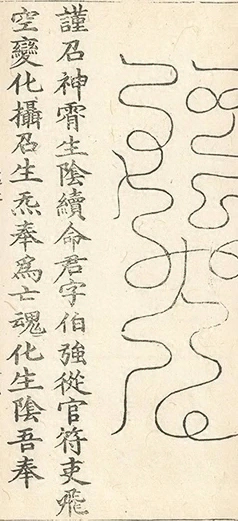 謹召神霄生陰續命君字伯強從官符吏飛
空變化攝召生炁奉爲亡魂化生陰吾奉